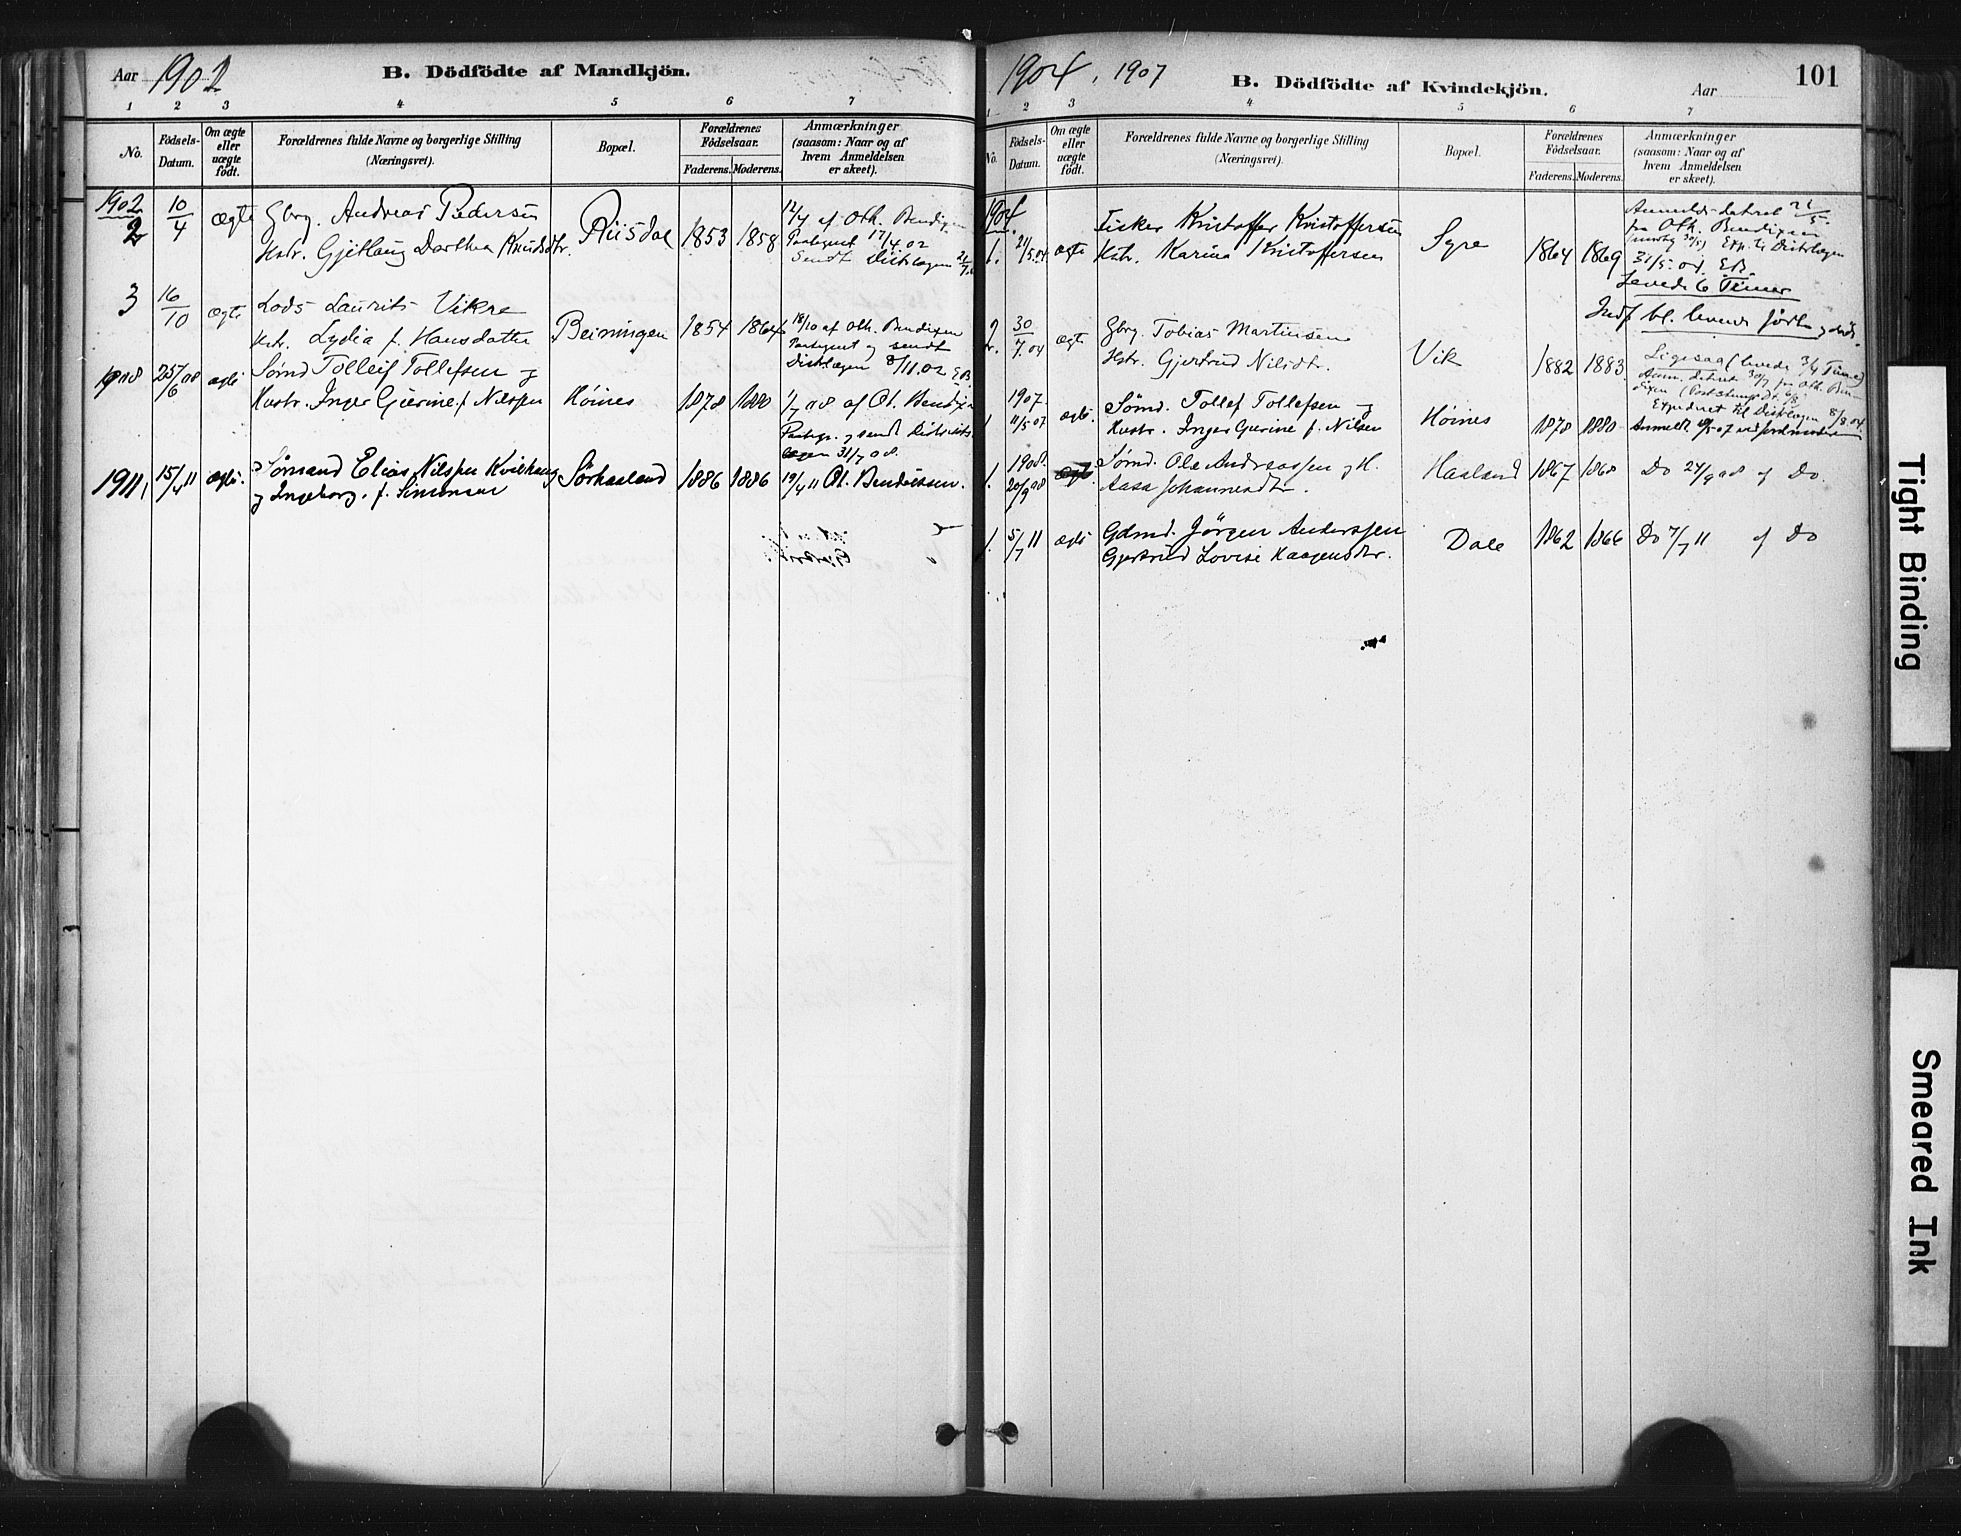 Aar 1902
B. Dödfödte af Mandkjön.
1 2 3 4 5 6 7
No.
Födsels-Datum.
Om ægte eller uægte födt.
Forældrenes fulde Navne og borgerlige Stilling (Næringsvei).
Bopæl.
Forældrenes Födselsaar.
Faderens. Moderens.
Anmærkninger (saasom: Naar og af hvem Anmeldelsen er skeet).
1902
2 10/4 ægte Gbrg. Andreas Pedersen
Hstr. Gjetlaug Dorthea Knudsdtr.
Riisdal 1853 1858
12/4 af Oth. Bendixen
Paategnet 17/4 02
Sendt Distrlægen
3 16/10 ægte Lods Laurits Vikre
Hstr. Lydia f. Hansdatter
Beiningen 1854 1864
18/10 af Oth. Bendixen
Paategnet og sendt
Distrlægen 8/11.02 EB.
1908 25/6 08 ægte Sømd Tolleif Tollefsen og
Hustr. Inger Gurine f. Nilssen
Høines 1878 1880
1/7 08 af Ot. Bendixen
Paategn. og sendt Distrikts-
lægen 31/7 08.
1911 1 15/4 11 ægte. Sömand Elias Nilssen Kvilhaug
og Ingeborg. f. Simonsen
Sørhaaland 1886 1886
19/4 11 Ot. Bendixsen.
1904, 1907
B. Dödfödte af Kvindekjön.
Aar
101
1 2 3 4 5 6 7
No.
Födsels-Datum.
Om ægte eller uægte födt.
Forældrenes fulde Navne og borgerlige Stilling (Næringsvei).
Bopæl.
Forældrenes Födselsaar.
Faderens. Moderens.
Anmærkninger (saasom: Naar og af hvem Anmeldelsen er skeet).
1904.
1. 21/5.04 ægte Fisker Kristoffer Kristoffersen
Hstr. Karina Kristoffersen
Syre 1864 1869
Anmeld. datret 21/5.
fra Oth. Bendixen
Exp. til Distrlægen
31/5.04. EB.
Levede 6 Timer
Indf bl. levende födte og døde.
2. 30/7.04 ægte Gbrg. Tobias Martinsen
Hstr. Gjertrud Nilsdtr.
Vik 1882 1883
Ligesaa (levede 3/4 Time)
Anm. datret 30/7 fra Oth. Ben-
dixen (Poststemp. dt. 6/8)
Expederet til Distrlægen 8/8.04.
1907
1 11/5 07 ægte. Sømd. Tollef Tollefsen og
Hustr. Inger Gurine f. Nilsen
Høines 1878 1880
Anmeldt 07 ved Jordmoderen
1908.
1. 20/9 08 ægte Sømd. Ole Andreassen og H.
Aasa Johannesdtr.
Haaland 1867 1868
Do 24/9 08 af Do.
1. 5/7 11 ægte Gdmd. Jörgen Anderssen
Gjertrud Lovise Haagensdtr.
Dale 1862 1866
Do 7/7 11 af Do
Tight Binding
Smeared Ink